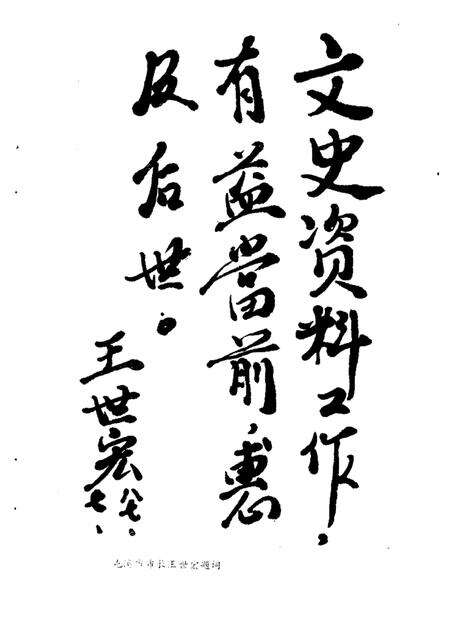 文史资料工作，
有益當前，惠
及后世。
王世宏
八七、七、
市长王世宏题词